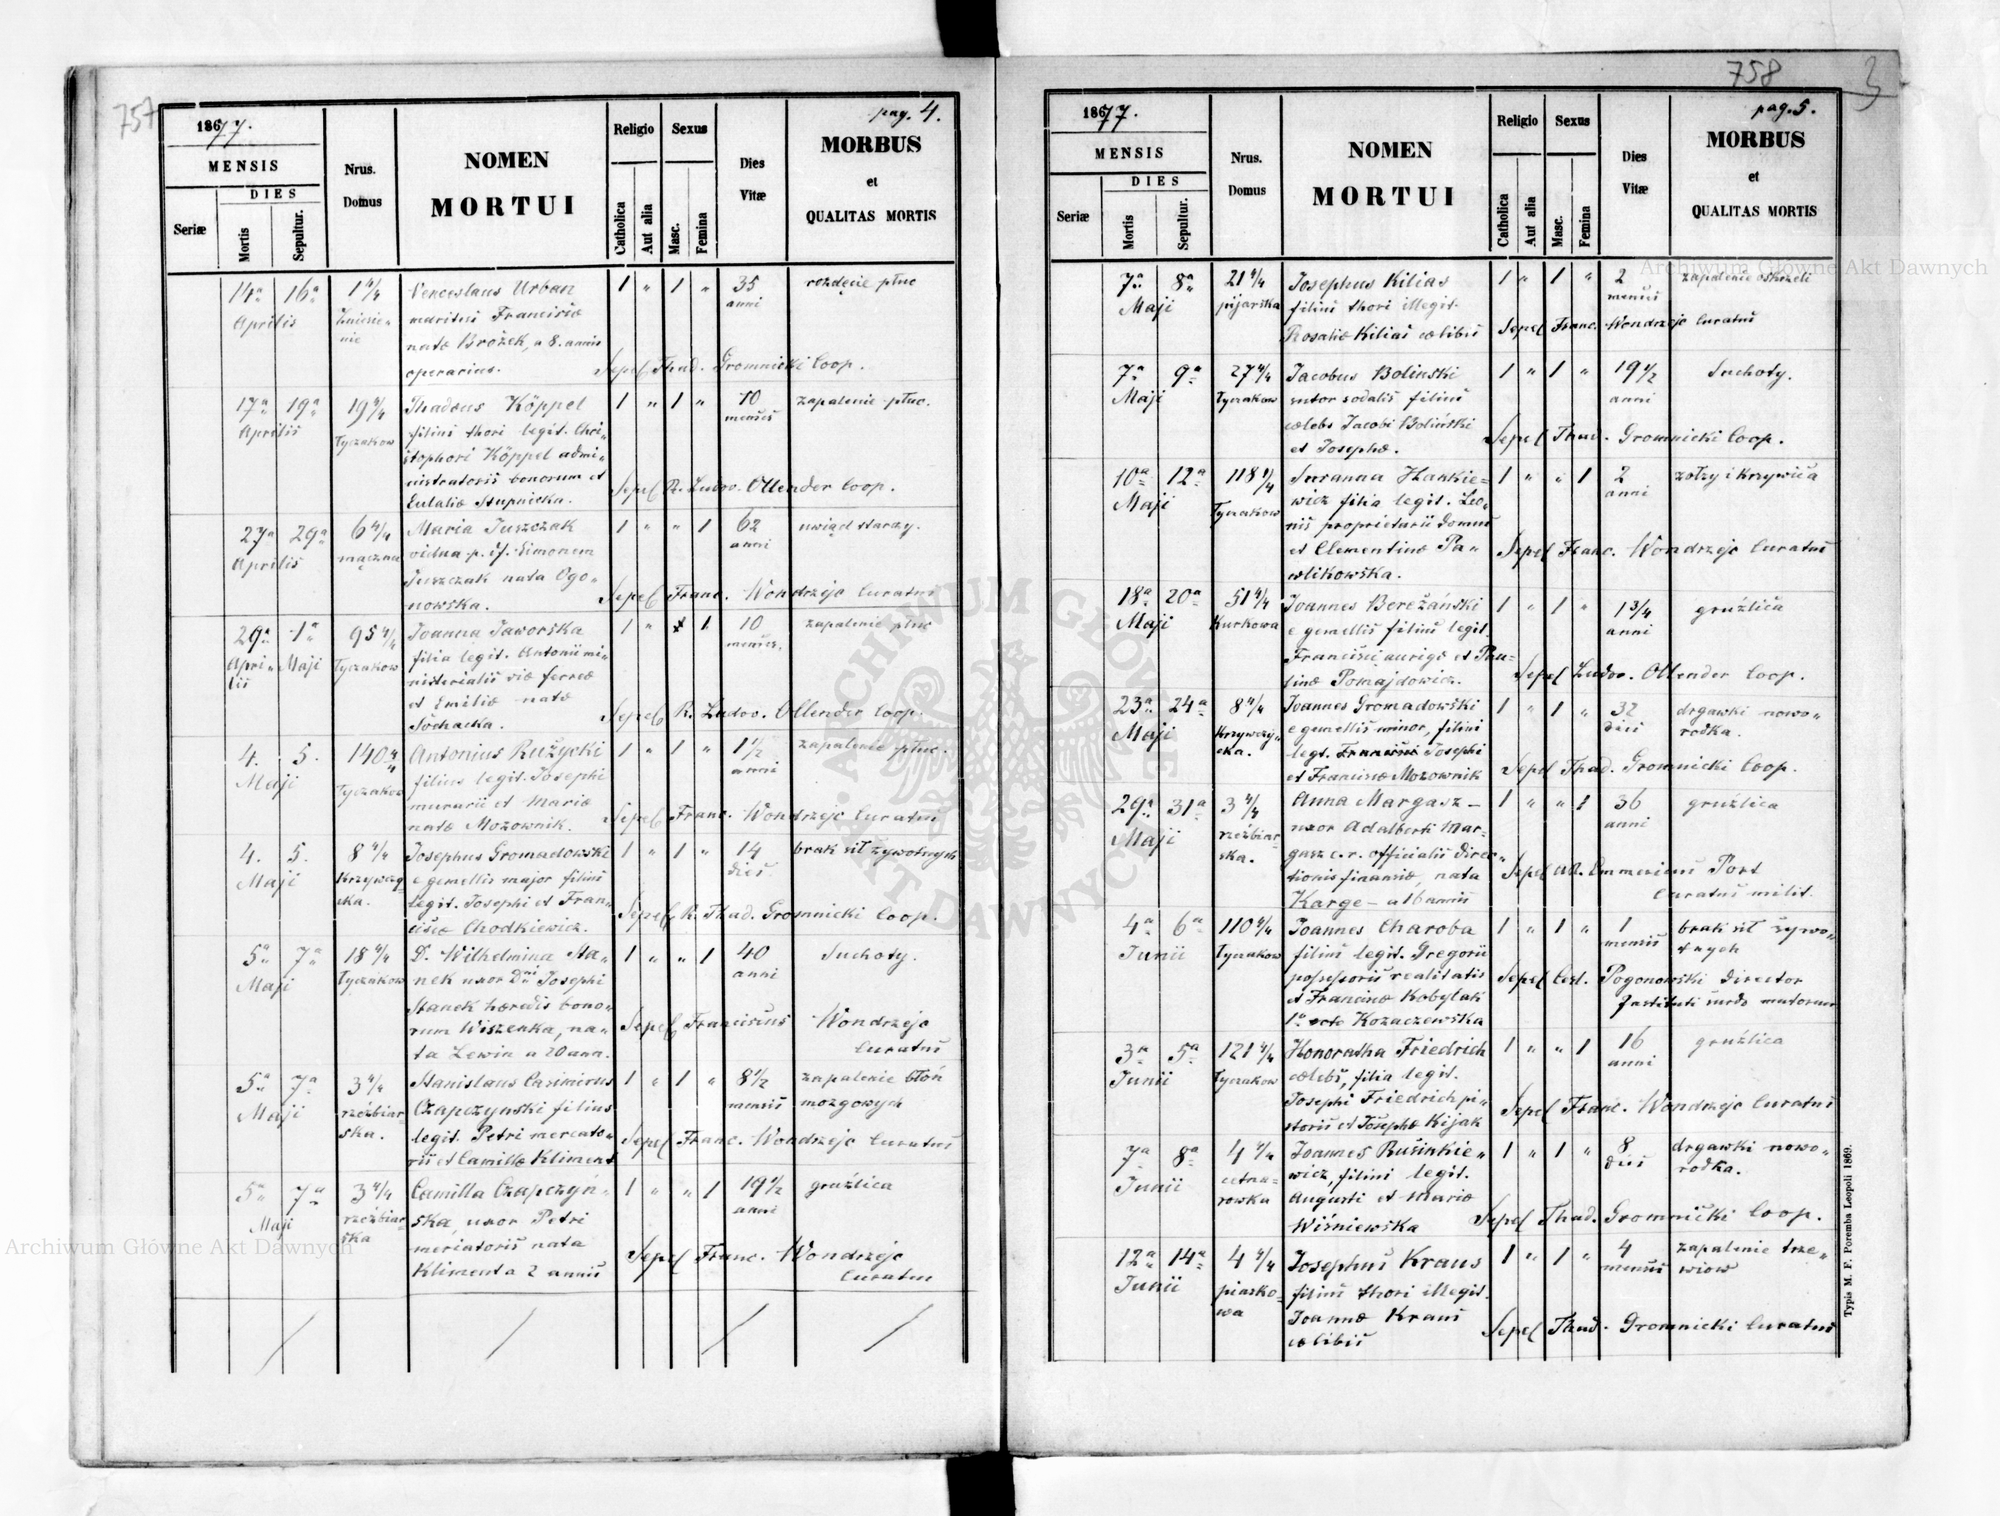 757
pag. 4.
1877.
MENSIS
DIES
Seriæ
Mortis
Sepultur.
Nrus.
Domus
NOMEN
MORTUI
Religio
Catholica
Aut alia
Sexus
Masc.
Femina
Dies
Vitæ
MORBUS
et
QUALITAS MORTIS
14a 16a 1 4/4 Venceslaus Urban 1 " 1 " 35 rozdęcie płuc
Aprilis Zniesie- maritus Franciscæ anni
nie natæ Brożek, a 8. annis
operarius. Sepel Thad. Gromnicki Coop.
17a 19a 19 4/4 Thadæus Köppel 1 " 1 " 10 zapalenie płuc.
Aprilis Łyczakow filius thori legit. Chri- menses
stophori Köppel admi-
nistratoris bonorum et Sepel R. Ludov. Ollender Coop.
Eulaliæ Stupnicka.
27a 29a 6 4/4 Maria Juszczak 1 " " 1 62 uwiąd starczy.
Aprilis mączna vidua p. Simonem anni
Juszczak nata Ogo-
nowska. Sepel Franc. Wondrzejc Curatus
29a 1a 95 4/4 Joanna Jaworska 1 " 1 10 zapalenie płuc
Apri- Maji Łyczakow filia legit. Antonii mi- menses.
lis nisterialis viæ ferreæ
et Emiliæ natæ
Sochacka. Sepel R. Ludov. Ollender Coop.
4. 5. 140 4/4 Antonius Rużycki 1 " 1 " 1 1/2 zapalenie płuc.
Maji Łyczakow filius legit. Josephi anni
murarii et Mariæ
natæ Mozownik. Sepel Franc. Wondrzejc Curatus
4. 5. 8 4/4 Josephus Gromadowski 1 " 1 " 14 brak sił żywotnych
Maji Krzywczy- e gemellis major filius dies
cka. legit. Josephi et Fran-
ciscæ Chodkiewicz. Sepel R. Thad. Gromnicki Coop.
5a 7a 18 4/4 D. Wilhelmina Sta- 1 " " 1 40 Suchoty.
Maji Łyczakow nek uxor Dni Josephi anni
Stanek hæredis bono-
rum Wiszenka, na- Sepel Franciscus Wondrzejc
ta Lewin a 20 ann. Curatus
5a 7a 3 4/4 Stanislaus Casimirus 1 " 1 " 8 1/2 zapalenie błon
Maji rzeźbiar- Czapczynski filius mensis mozgowych
ska. legit. Petri mercato-
rii et Camillæ Kliment Sepel Franc. Wondrzejc Curatus
5a 7a 3 4/4 Camilla Czapczyń- 1 " " 1 19 1/2 gruźlica
Maji rzeźbiar- ska, uxor Petri anni
ska mercatoris nata
Kliment a 2 annis Sepel Franc. Wondrzejc
Curatus
758
3
pag. 5.
1877.
MENSIS
DIES
Seriæ
Mortis
Sepultur.
Nrus.
Domus
NOMEN
MORTUI
Religio
Catholica
Aut alia
Sexus
Masc.
Femina
Dies
Vitæ
MORBUS
et
QUALITAS MORTIS
7a 8a 21 4/4 Josephus Kilias 1 " 1 " 2 zapalenie oskrzeli
Maji pijarska filius thori illegit. menses
Rosaliæ Kilias cælibis Sepel Franc. Wondrzejc Curatus
7a 9a 27 4/4 Jacobus Bolinski 1 " 1 " 19 1/2 Suchoty.
Maji Łyczakow sutor sodalis filius anni
cælebs Jacobi Boliński
et Josephæ. Sepel Thad. Gromnicki Coop.
10a 12a 118 4/4 Susanna Hankie- 1 " " 1 2 zołzy i krzywica
Maji Łyczakow wicz filia legit. Leo- anni
nis proprietarii domus
et Clementinæ Pa- Sepel Franc. Wondrzejc Curatus
wlikowska.
18a 20a 51 4/4 Joannes Bereżański 1 " 1 " 1 3/4 gruźlica
Maji Kurkowa e gemellis filius legit. anni
Francisci aurigæ et Pau-
linæ Pomajdowicz. Sepel Ludov. Ollender Coop.
23a 24a 8 4/4 Joannes Gromadowski 1 " 1 " 32 drgawki nowo-
Maji Krzywczy- e gemellis minor, filius dies rodka.
cka. legt. Josephi
et Franciscæ Mozownik Sepel Thad. Gromnicki Coop.
29a 31a 3 4/4 Anna Margasz - 1 " " 1 36 gruźlica
Maji rzeźbiar- uxor Adalberti Mar- anni
ska. gasz c. r. officialis direc-
tionis financiæ, nata Sepel Emmericus Port
Karge - a 16 annis Curatus milit.
4a 6a 110 4/4 Joannes Charoba 1 " 1 " 1 brak sił żywo-
Junii Łyczakow filius legit. Gregorii mensis tnych
possessoris realitatis Sepel Cest. Pogonowski Director
et Franciscæ Kobylak Instituti surdo mutorum
1o voto Kozaczewska
3a 5a 121 4/4 Honoratha Friedrich 1 " " 1 16 gruźlica
Junii Łyczakow cælebs, filia legit. anni
Josephi Friedrich pi-
storis et Josephæ Kijak Sepel Franc. Wondrzejc Curatus
7a 8a 4 4/4 Joannes Rusinkie- 1 " 1 " 8 drgawki nowo-
Junii cetna- wicz, filius legit. dies rodka.
rowska Augusti et Mariæ
Wiśniewska Sepel Thad. Gromnicki Coop.
12a 14a 4 4/4 Josephus Kraus 1 " 1 " 4 zapalenie trze-
Junii piasko- filius thori illegit. menses wiow
wa Joannæ Kraus
cælibis Sepel Thad. Gromnicki Curatus
Typis M. F. Poremba Leopoli 1869.
Archiwum Główne Akt Dawnych
Archiwum Główne Akt Dawnych
ARCHIWUM GŁÓWNE AKT DAWNYCH